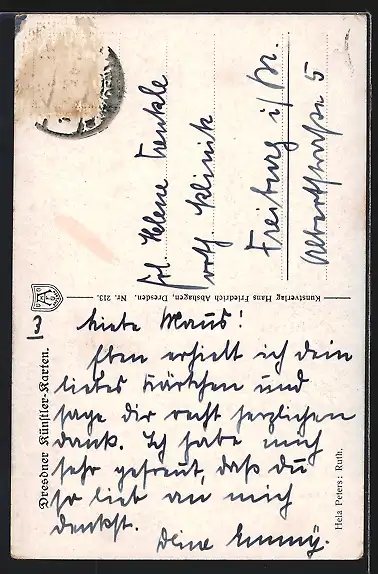 Frl. Helene Trenkle
Klinik
Freiburg i/Br.
Albertstraße 5
Kunstverlag Hans Friedrich Abshagen, Dresden. Nr. 213.
Dresdner Künstler-Karten.
Hela Peters: Ruth.
Liebe Maus!
Eben erhielt ich dein
liebes Kärtchen und
sage dir recht herzlichen
Dank. Ich habe mich
sehr gefreut, daß du
so lieb an mich
denkst.
Deine Emmy.